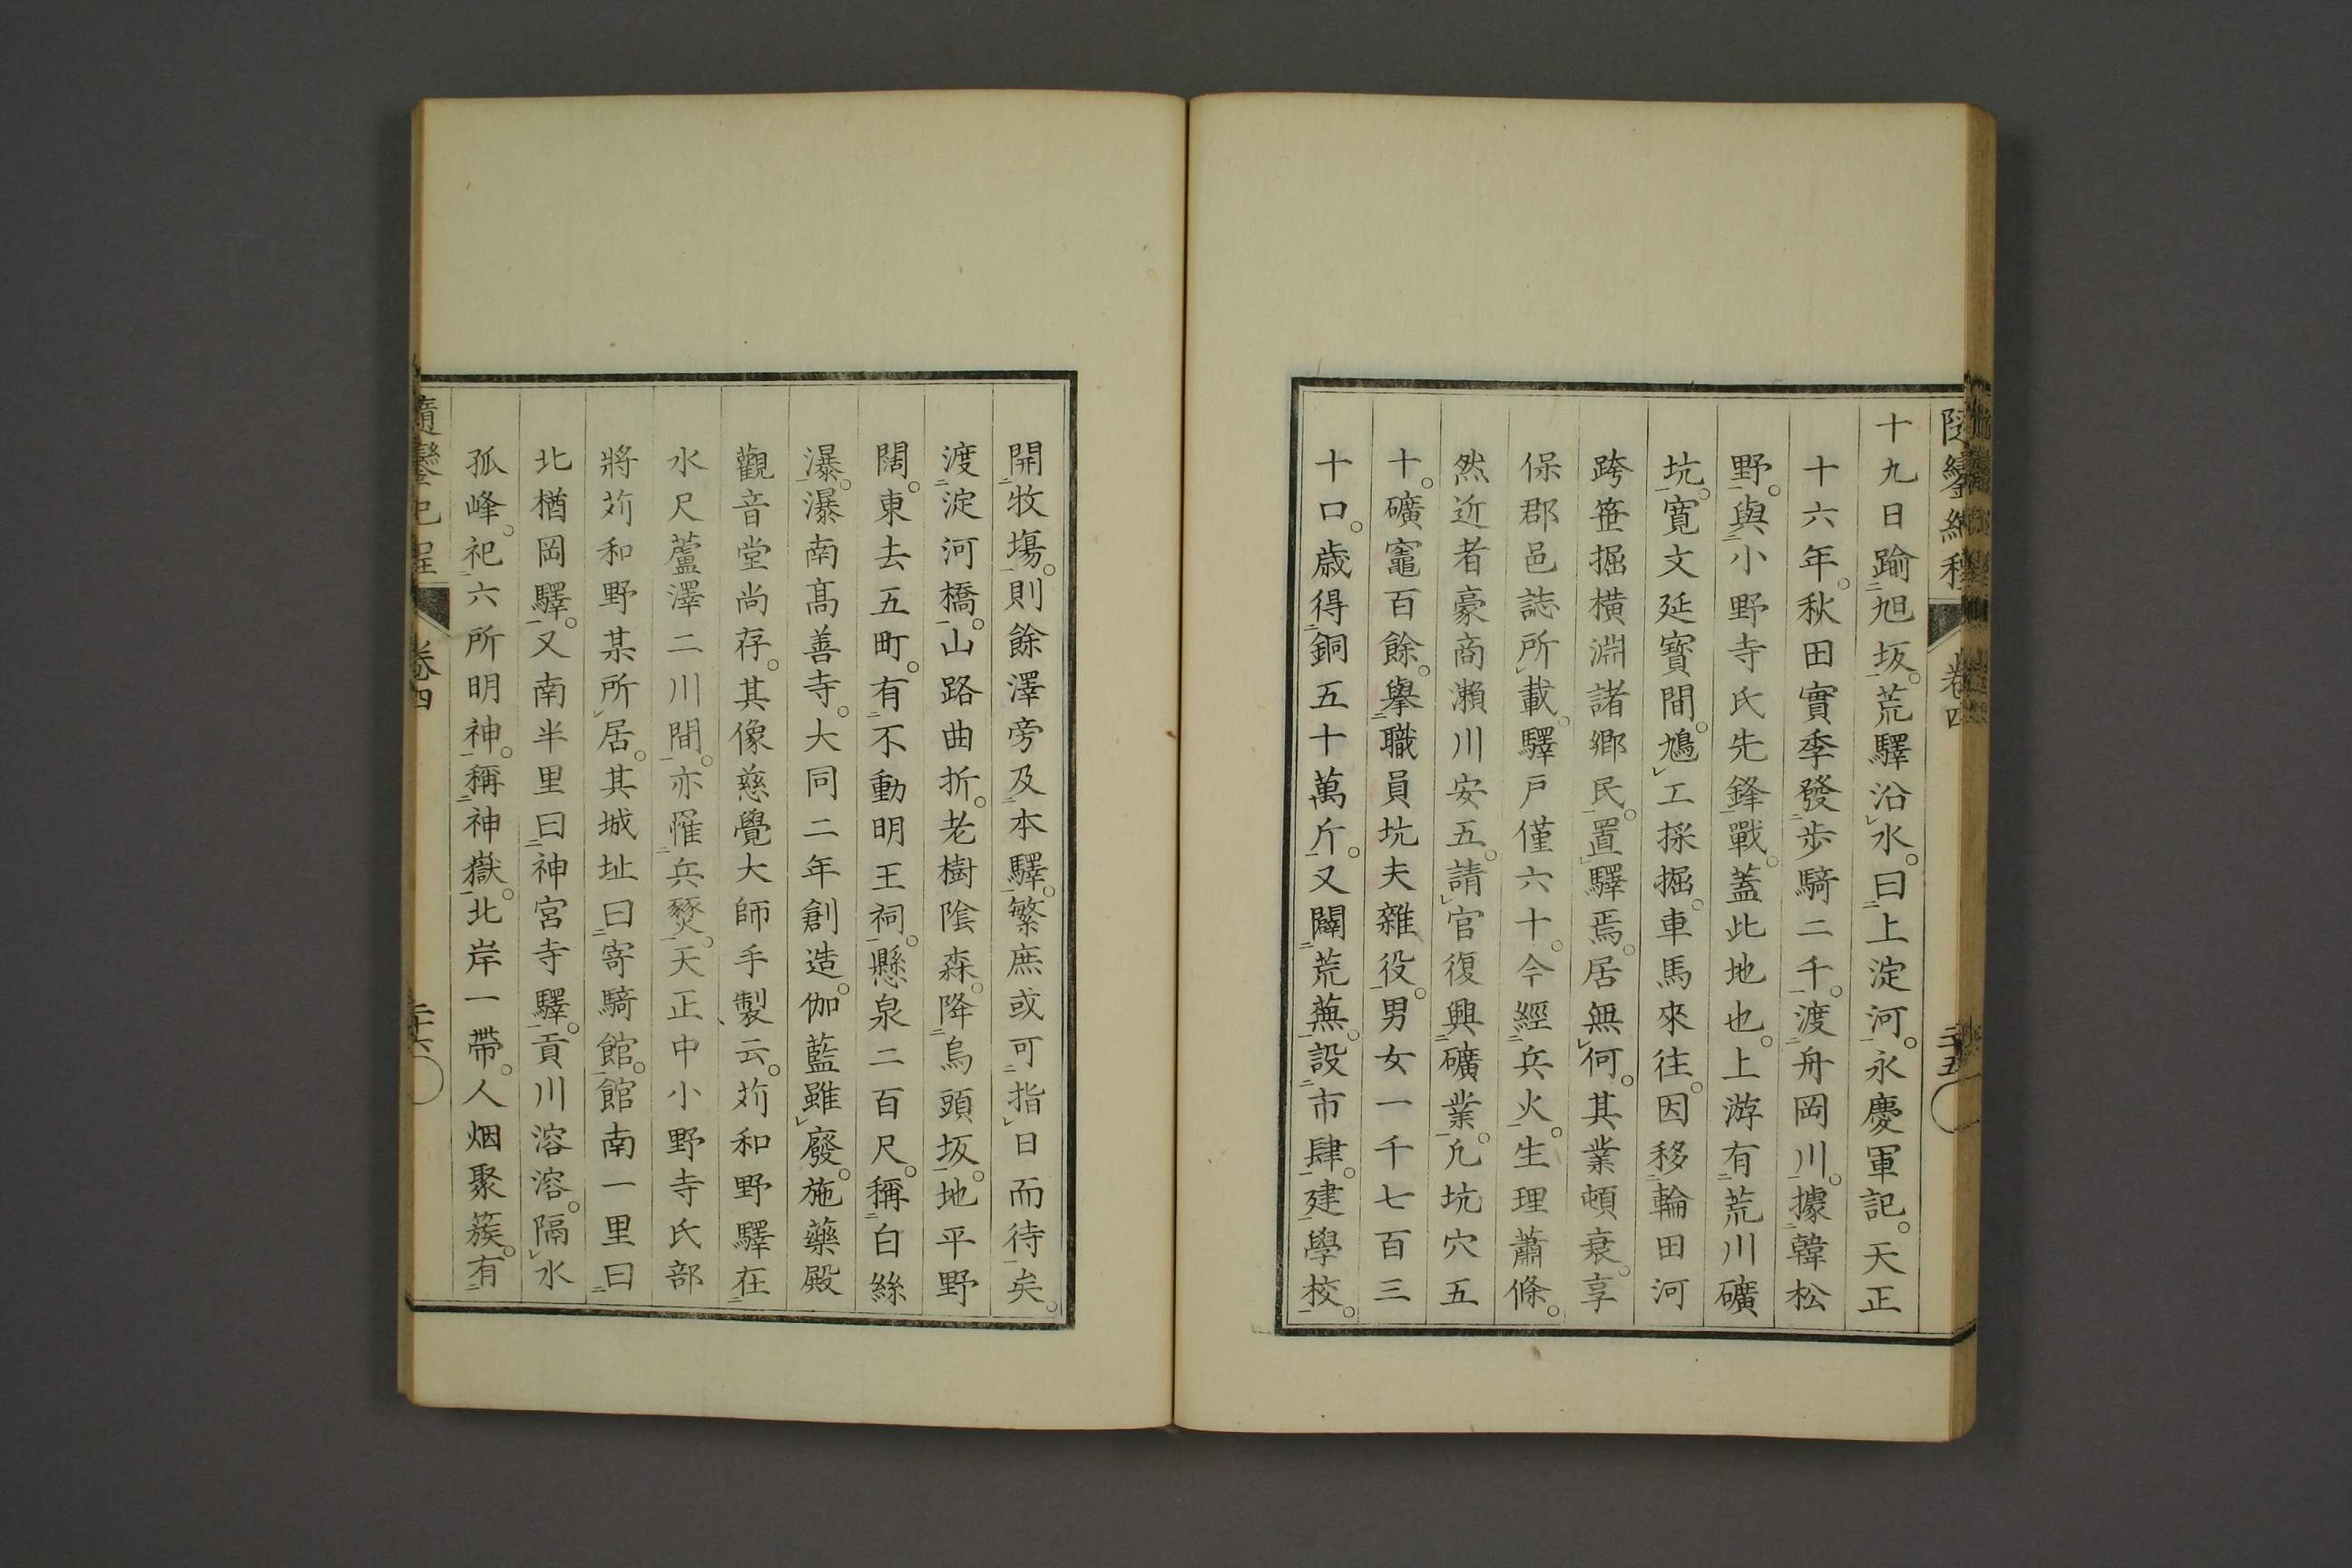 十九日踰旭坂。荒驛沿水。曰上淀河。永慶軍記。天正
十六年。秋田實季發步騎二千。渡舟岡川。據韓松
野。與小野寺氏先鋒戰。蓋此地也。上游有荒川礦
坑。寛文延寶間。鳩工採掘。車馬來往。因移輪田河
跨笹掘橫淵諸鄉民。置驛焉。居無何。其業頓衰。享
保郡邑誌所載。驛戶僅六十。今經兵火。生理蕭條。
然近者豪商瀬川安五。請官復興礦業。凢坑穴五
十。礦竈百餘。擧職員坑夫雜役。男女一千七百三
十口。歲得銅五十萬斤。又闢荒蕪。設市肆。建學校。
卷四
開牧塲。則餘澤旁及本驛。繁庶或可指日而待矣。
渡淀河橋。山路曲折。老樹陰森。降烏頭坂。地平野
闊。東去五町。有不動明王祠。懸泉二百尺。稱白絲
瀑。瀑南髙善寺。大同二年創造。伽藍雖廢。施藥殿
觀音堂尚存。其像慈覺大師手製云。苅和野驛在
水尺蘆澤二川間。亦罹兵燹。天正中小野寺氏部
將苅和野某所居。其城址曰寄騎館。館南一里曰
北楢岡驛。又南半里曰神宮寺驛。貢川溶溶。隔水
孤峰。祀六所明神。稱神嶽。北岸一帶。人烟聚簇。有
隨鑾紀程
卷四
二十六